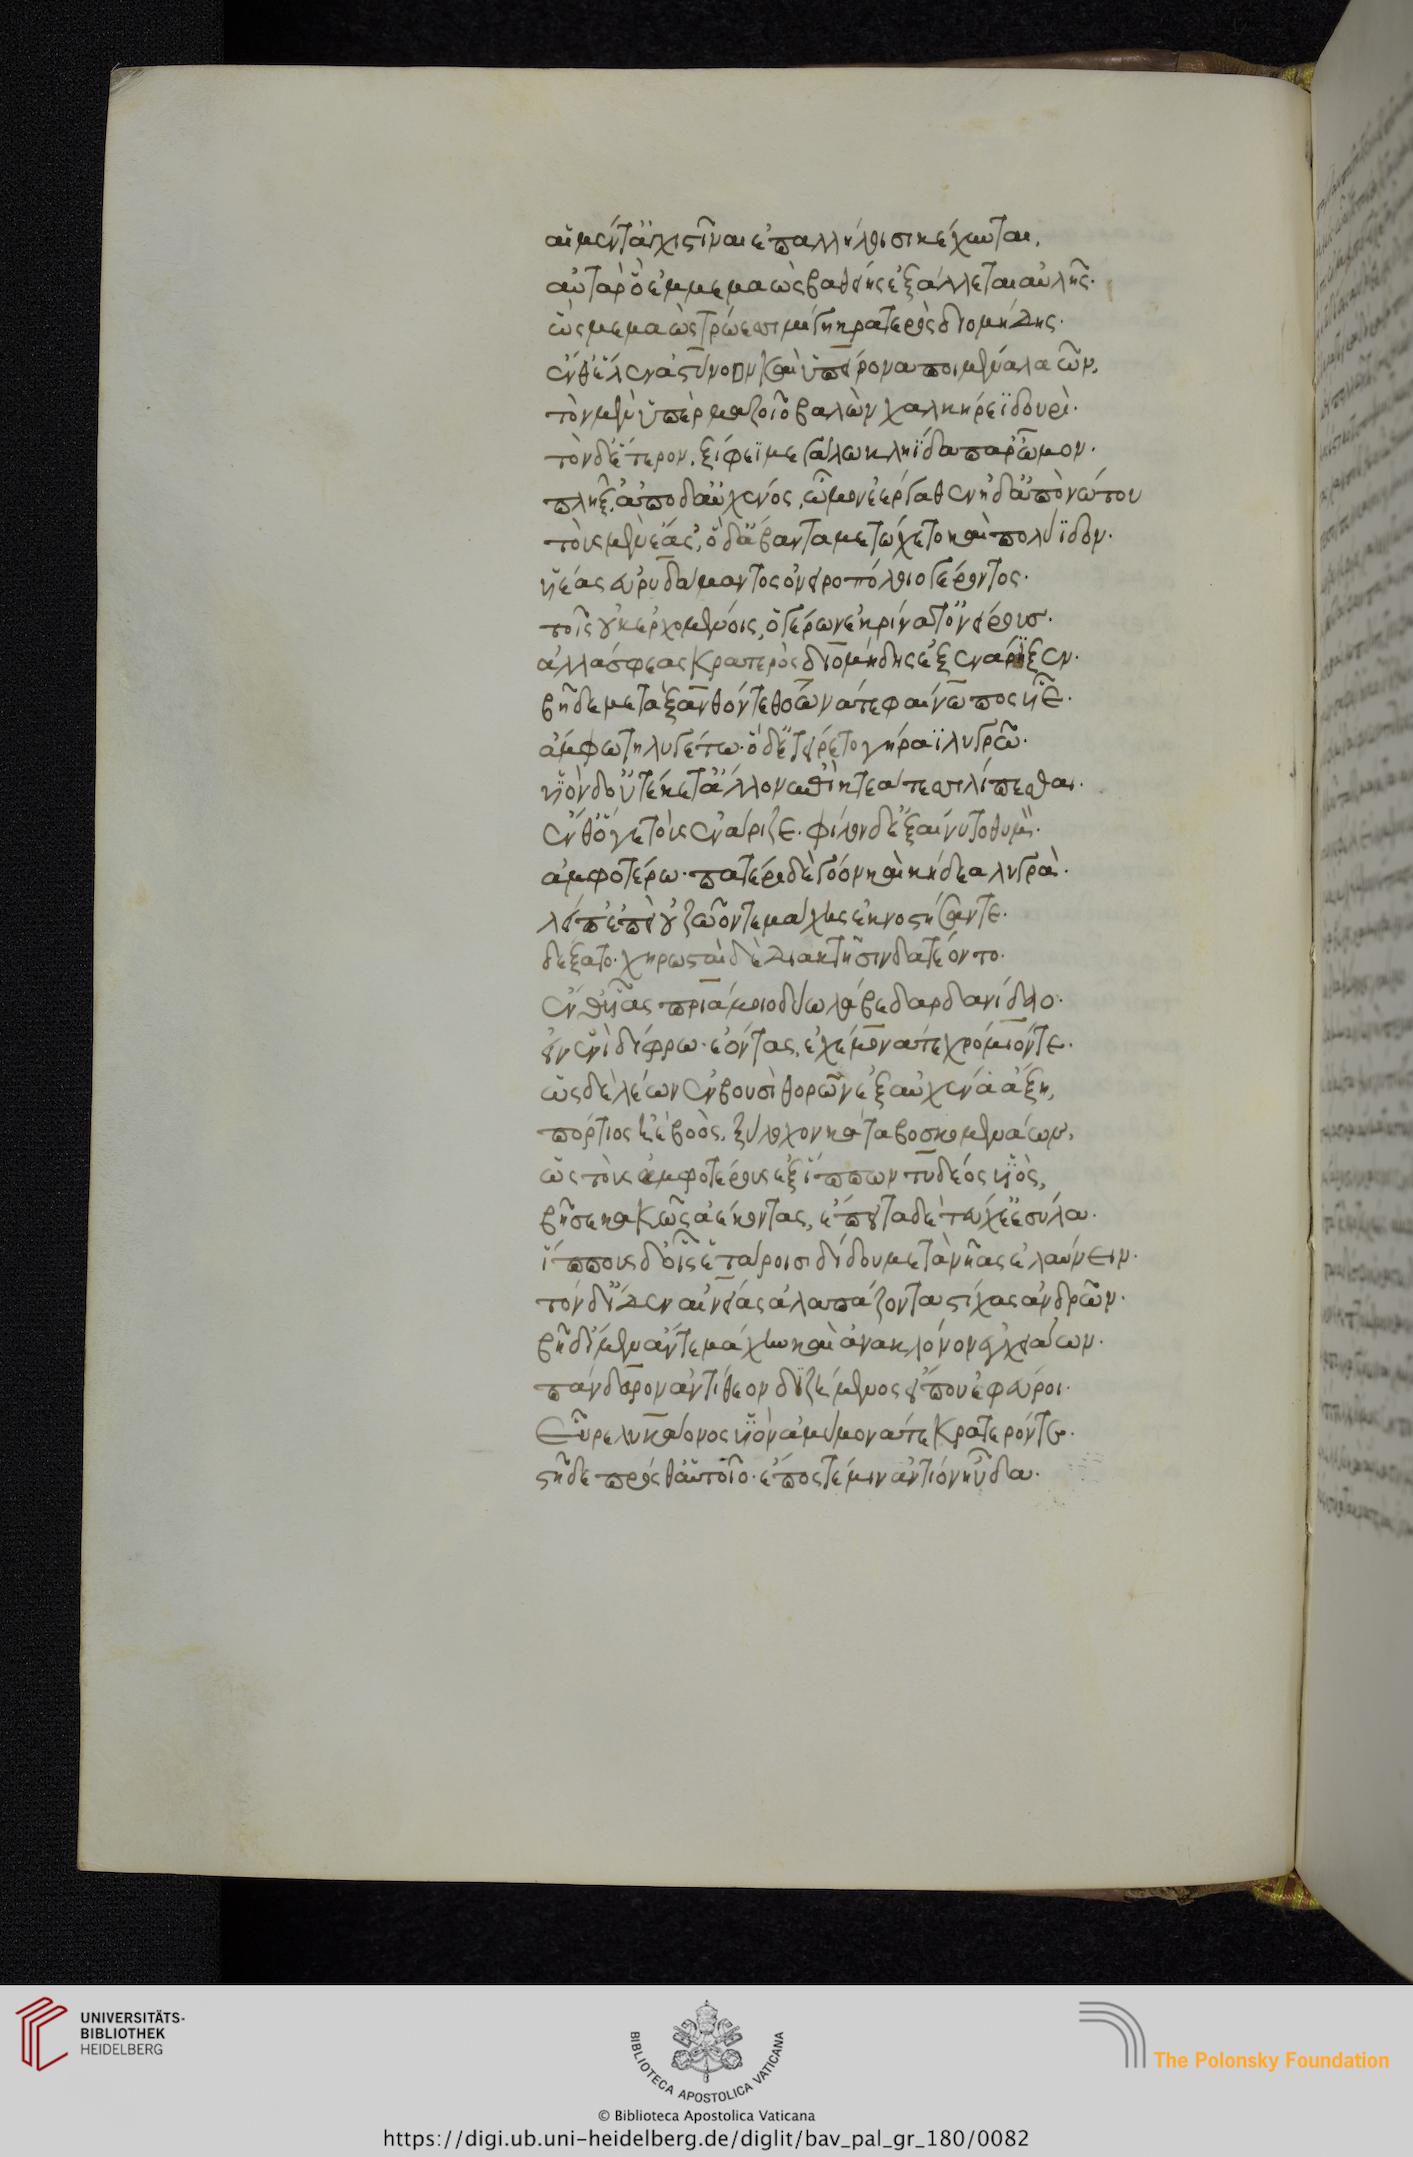 αἱ μέν τ' ἀγχιστῖναι ἐπ' ἀλλήλοισι κέχυνται,
αὐτὰρ ὃ ἐμμεμαὼς βαθείης ἐξάλλεται αὐλῆς·
ὣς μεμαὼς τρώεσσι μίγη κρατερὸς διομήδης·
ἔνθ' ἕλεν ἀστύνοον καὶ ὑπείρονα ποιμένα λαῶν,
τὸν μὲν ὑπὲρ μαζοῖο βαλὼν χαλκήρεϊ δουρί·
τὸν δ' ἕτερον, ξίφεϊ μεγάλω κληΐδα παρ' ὦμον·
πλῆξ', ἀπὸ δ' αὐχένος, ὦμον ἐέργαθεν ἠδ' ἀπὸ νώτου
τοὺς μὲν ἔασ', ὁ δ' ἄβαντα μετώχετο καὶ πολύϊδον·
υἱέας εὐρυδάμαντος ὀνειροπόλοιο γέροντος·
τοῖς οὐκ ἐρχομένοις, ὁ γέρων ἐκρίνατ' ὀνείρους·
ἀλλά σφεας κρατερὸς διομήδης ἐξενάριξεν·
βῆ δὲ μετὰ ξάνθόν τε θόωνά τε φαίνωπος υἷε·
ἄμφω τηλυγέτω· ὁ δὲ τείρετο γήραϊ λυγρῶ·
υἱὸν δ' οὐ τέκετ' ἄλλον ἐπὶ κτεάτεσσι λιπέσθαι·
ἔνθ' ὅγε τοὺς ἐνάριζε· φίλον δ' ἐξαίνυτο θυμὸν·
ἀμφοτέρω· πατέρι δὲ γόον καὶ κήδεα λυγρὰ·
λεῖπ' ἐπεὶ οὐ ζώοντε μάχης ἐκνοστήσαντε·
δέξατο· χηρωσταὶ δὲ διὰ κτῆσιν δατέοντο·
ἔνθ' υἷας πριάμοιο δύω λάβε δαρδανίδαο·
εἰν ἑνὶ δίφρω· ἐόντας, ἐχέμονά τε χρομίόν τε·
ὡς δὲ λέων ἐν βουσὶ θορὼν ἐξ αὐχένα ἄξη,
πόρτιος ἠὲ βοὸς, ξύλοχον κάτα βοσκομενάων,
ὣς τοὺς ἀμφοτέρους ἐξ ἵππων τυδέος υἱὸς,
βῆσε κακῶς ἀέκοντας, ἔπειτα δὲ τεύχε' ἐσύλα·
ἵππους δ' οἷς ἑτάροισι δίδου μετὰ νῆας ἐλαύνειν·
τὸν δ' ἴδεν αἰνείας ἀλαπάζοντα στίχας ἀνδρῶν·
βῆ δ' ἴμεν ἄν τε μάχην καὶ ἀνὰ κλόνον ἐγχειάων·
πάνδαρον ἀντίθεον διζήμενος εἴ που ἐφεύροι·
εὗρε λυκάονος υἱὸν ἀμύμονά τε κρατερόν τε·
στῆ δὲ πρόσθ' αὐτοῖο· ἔπος τέ μιν ἀντίον ηὔδα·
UNIVERSITÄTS-
BIBLIOTHEK
HEIDELBERG
BIBLIOTECA APOSTOLICA VATICANA
The Polonsky Foundation
© Biblioteca Apostolica Vaticana
https://digi.ub.uni-heidelberg.de/diglit/bav_pal_gr_180/0082